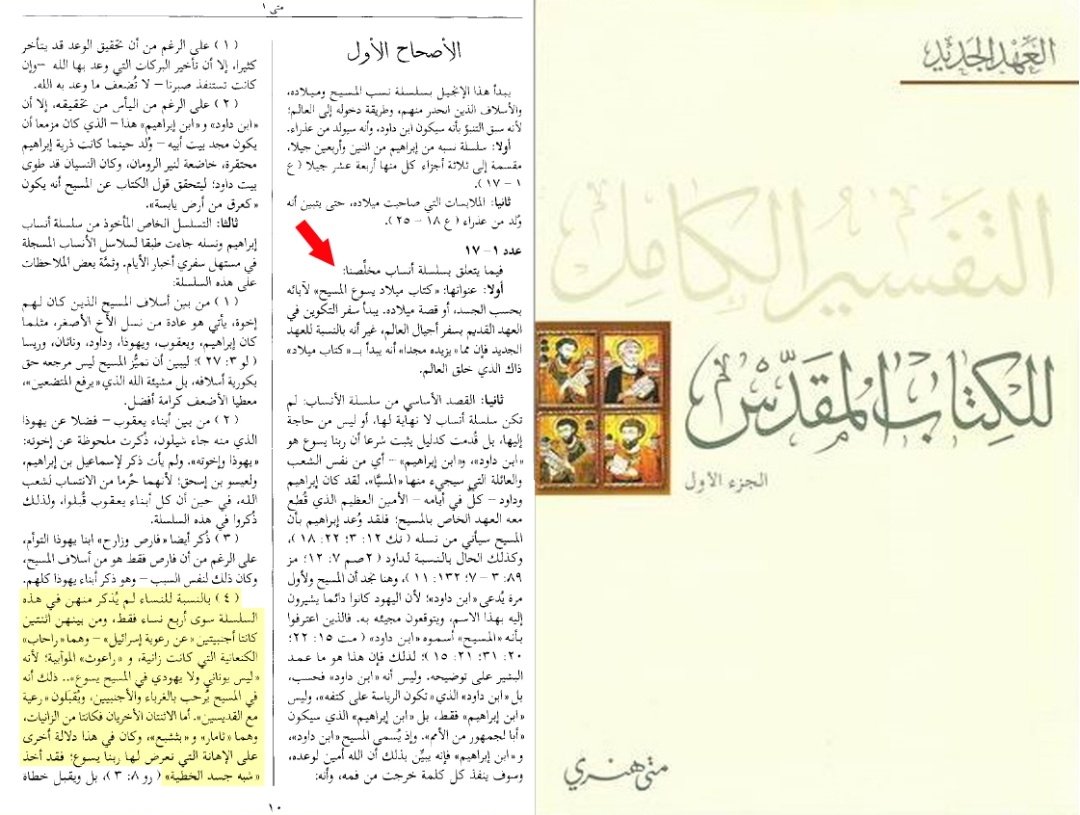 متى ١
الأصحاح الأول
يبدأ هذا الإنجيل بسلسلة نسب المسيح وميلاده،
والأسلاف الذين انحدر منهم، وطريقة دخوله إلى العالم؛
لأنه سبق التنبؤ بأنه سيكون ابن داود، وأنه سيولد من عذراء.
أولا: سلسلة نسبه من إبراهيم من اثنين وأربعين جيلا،
مقسمة إلى ثلاثة أجزاء كل منها أربعة عشر جيلا ( ع
١ – ١٧ ).
ثانيا: الملابسات التي صاحبت ميلاده، حتى يتبين أنه
وُلد من عذراء ( ع ١٨ – ٢٥ ).
عدد ١ – ١٧
فيما يتعلق بسلسلة أنساب مخلِّصنا:
أولا: عنوانها: «كتاب ميلاد يسوع المسيح» لآبائه
بحسب الجسد، أو قصة ميلاده. يبدأ سفر التكوين في
العهد القديم بسفر أجيال العالم، غير أنه بالنسبة للعهد
الجديد فإن مما «يزيده مجدا» أنه يبدأ بـ«كتاب ميلاد»
ذاك الذي خلق العالم.
ثانيا: القصد الأساسي من سلسلة الأنساب: لم
تكن سلسلة أنساب لا نهاية لها، أو ليس من حاجة
إليها، بل قُدمت كدليل يثبت شرعا أن ربنا يسوع هو
«ابن داود»، و«ابن إبراهيم» – أي من نفس الشعب
والعائلة التي سيجيء منها «المسيَّا». لقد كان إبراهيم
وداود – كلٌّ في أيامه – الأمين العظيم الذي قُطع
معه العهد الخاص بالمسيح؛ فلقد وُعد إبراهيم بأن
المسيح سيأتي من نسله ( تك ١٢: ٣؛ ٢٢: ١٨ )،
وكذلك الحال بالنسبة لداود ( ٢صم ٧: ١٢؛ مز
٨٩: ٣ – ٧؛ ١٣٢: ١١ )، وهنا نجد أن المسيح ولأول
مرة يُدعى «ابن داود»؛ لأن اليهود كانوا دائما يشيرون
إليه بهذا الاسم، ويتوقعون مجيئه به. فالذين اعترفوا
بأنه «المسيح» أسموه «ابن داود» ( مت ١٥: ٢٢؛
٢٠: ٣١؛ ٢١: ١٥ )؛ لذلك فإن هذا هو ما عمد
البشير على توضيحه. وليس أنه «ابن داود» فحسب،
بل «ابن داود» الذي «تكون الرياسة على كتفه»، وليس
«ابن إبراهيم» فقط، بل «ابن إبراهيم» الذي سيكون
«أبا لجمهور من الأمم». وإذ يُسمى المسيح «ابن داود»،
و «ابن إبراهيم» فإنه يبيِّن بذلك أن الله أمين لوعده،
وسوف ينفذ كل كلمة خرجت من فمه، وأنه:
( ١ ) على الرغم من أن تحقيق الوعد قد يتأخر
كثيرا، إلا أن تأخير البركات التي وعد بها الله –وإن
كانت تستنفذ صبرنا – لا تُضعف ما وعد به الله.
( ٢ ) على الرغم من اليأس من تحقيقه، إلا أن
«ابن داود» و«ابن إبراهيم» هذا – الذي كان مزمعا أن
يكون مجد بيت أبيه – وُلد حينما كانت ذرية إبراهيم
محتقرة، خاضعة لنير الرومان، وكان النسيان قد طوى
بيت داود؛ ليتحقق قول الكتاب عن المسيح أنه يكون
«كعرق من أرض يابسة».
ثالثا: التسلسل الخاص المأخوذ من سلسلة أنساب
إبراهيم ونسله جاءت طبقا لسلاسل الأنساب المسجلة
في مستهل سفري أخبار الأيام. وثمَّة بعض الملاحظات
على هذه السلسلة:
( ١ ) من بين أسلاف المسيح الذين كان لهم
إخوة، يأتي هو عادة من نسل الأخ الأصغر، مثلما
كان إبراهيم، ويعقوب، ويهوذا، وداود، وناثان، وريسا
( لو ٣: ٢٧ )؛ ليبين أن تميُّز المسيح ليس مرجعه حق
بكورية أسلافه، بل مشيئة الله الذي «يرفع المتضعين»،
معطيا الأضعف كرامة أفضل.
( ٢ ) من بين أبناء يعقوب – فضلا عن يهوذا
الذي منه جاء شيلون، ذُكرت ملحوظة عن إخوته:
«يهوذا وإخوته». ولم يأت ذكر لإسماعيل بن إبراهيم،
ولعيسو بن إسحق؛ لأنهما حُرما من الانتساب لشعب
الله، في حين أن كل أبناء يعقوب قُبلوا، ولذلك
ذُكروا في هذه السلسلة.
( ٣ ) ذُكر أيضا «فارص وزارح» ابنا يهوذا التوأم،
على الرغم من أن فارص فقط هو من أسلاف المسيح،
وكان ذلك لنفس السبب – وهو ذكر أبناء يهوذا كلهم.
( ٤ ) بالنسبة للنساء لم يُذكر منهن في هذه
السلسلة سوى أربع نساء فقط، ومن بينهن اثنتين
كانتا أجنبيتين «عن رعوية إسرائيل» – وهما «راحاب»
الكنعانية التي كانت زانية، و «راعوث» الموآبية؛ لأنه
«ليس يوناني ولا يهودي في المسيح يسوع».. ذلك أنه
في المسيح يُرحب بالغرباء والأجنبيين، ويُقبلون «رعية
مع القديسين». أما الاثنتان الأخريان فكانتا من الزانيات،
وهما «ثامار» و «بثشبع»، وكان في هذا دلالة أخرى
على الإهانة التي تعرض لها ربنا يسوع؛ فقد أخذ
«شبه جسد الخطية» ( رو ٨: ٣ )، بل ويقبل خطاة
١٠
العهد الجديد
التفسير الكامل
للكتاب المقدس
الجزء الأول
متى هنري